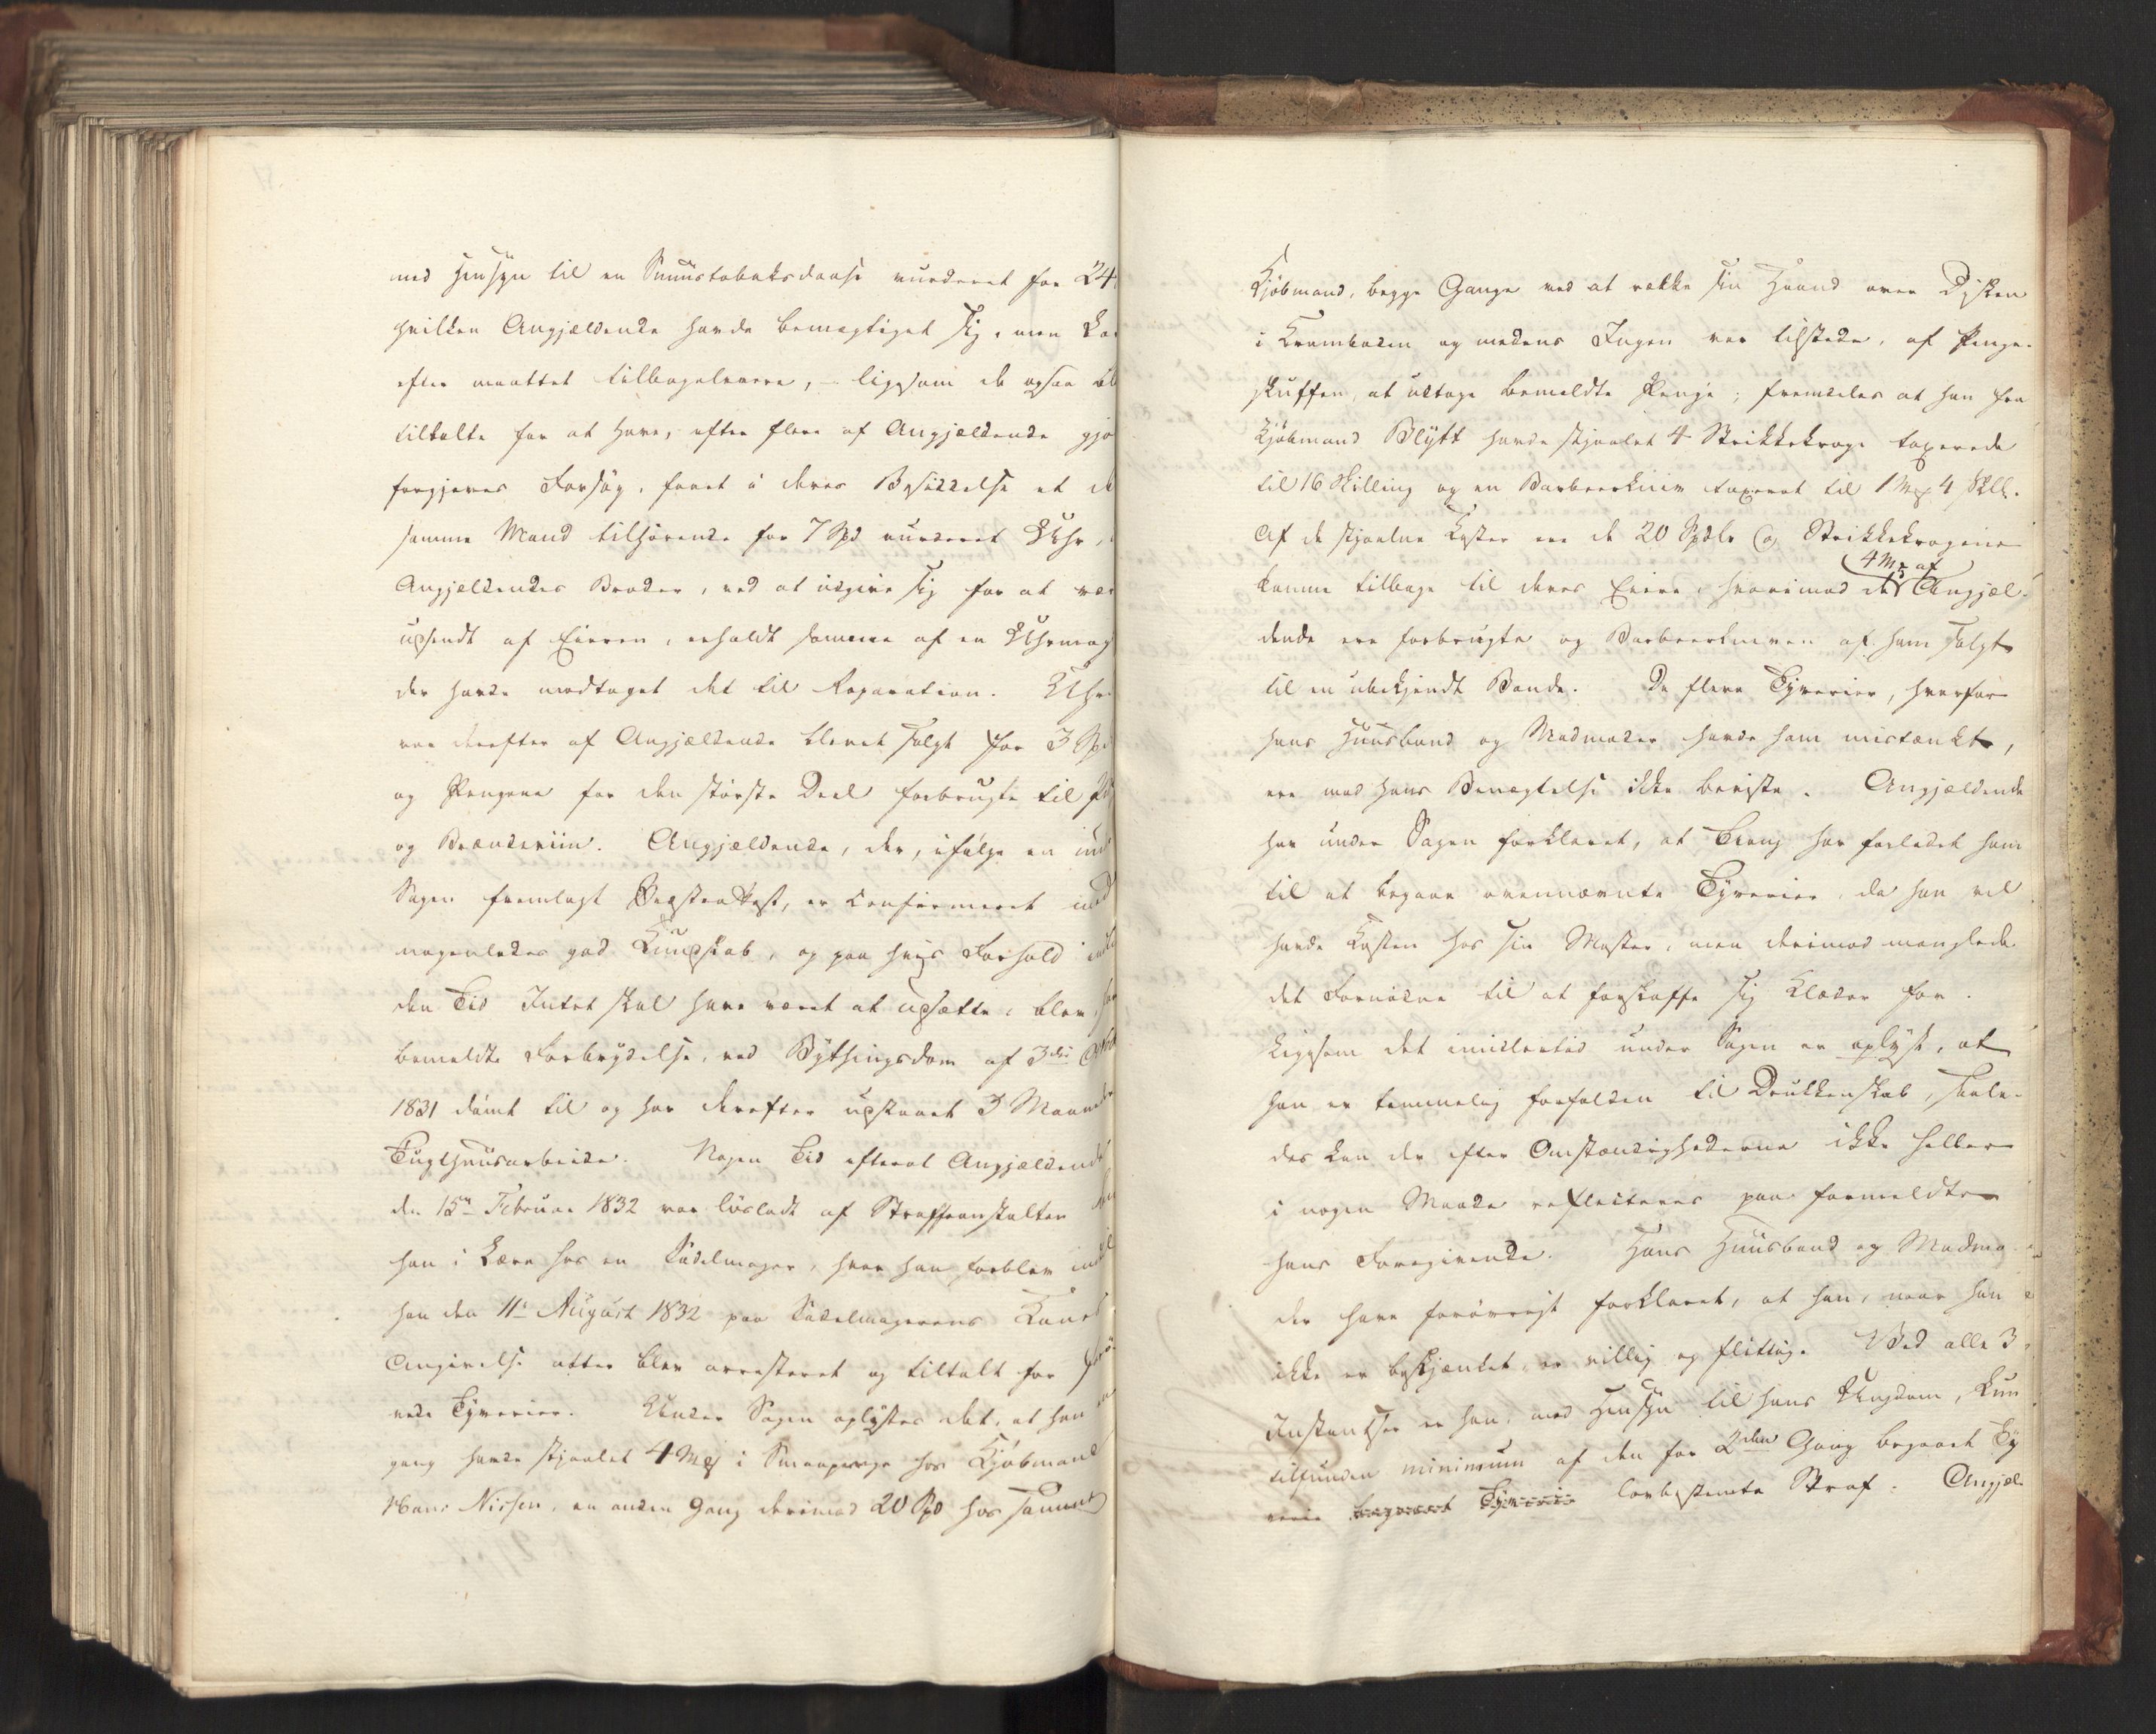 med Hensyn til en Snuustobaksdaase vurderet for 24
hvilken Angjældende havde bemægtiget sig, men
efter maattet tilbagelevere, – ligesom de ogsaa
tiltalte for at have, efter flere af Angjældende
forgjæves Forsøg, faaet i deres Besiddelse et
samme Mand tilhørende for 7 Spd vurderet Uhr,
Angjældendes Broder, ved at udgive sig for at
udsendt af Eieren, erholdt samme af en
der havde modtaget det til Reparation. Uhr
var derefter af Angjældende blevet solgt for 3
og Pengene for den største Deel forbrugte til
og Brændeviin. Angjældende, der, ifølge en
Sagen fremlagt Præsteattest, er confirmeret med
nogenledes god Kundskab, og paa hvis Forhold
den Tid Intet skal have været at udsætte, blev for
bemeldte Forbrydelse, ved Bythingsdom af 3die
1831 dømt til og har derefter udstaaet 3 Maaneders
Tugthuusarbeide. Nogen Tid efterat Angjældende
den 15n Februar 1832 var løsladt af Straffeanstalten kom
han i Lære hos en Sadelmager, hvor han forblev indtil
han den 11e August 1832 paa Sadelmagerens Kones
Angivelse atter blev arresteret og tiltalt for
vede Tyverier. Under Sagen oplystes det, at han en
gang havde stjaalet 4 Mk i Smaapenge hos Kjøbmand
Hans Nissen, en anden Gang derimod 20 Spd hos samme
Kjøbmand, begge Gange ved at række sin Haand over Disken
i Kramboden og medens Ingen var tilstede, af Penge-
skuffen, at udtage bemeldte Penge; fremdeles at han fra
Kjøbmand Blytt havde stjaalet 4 Strikkekroge taxerede
til 16 Skilling og en Barbeerkniv taxeret til 1 Mk 4 Skll.
Af de stjaalne Koster ere de 20 Spdlr og Strikkekrogene
komne tilbage til deres Eiere, hvorimod de 4 Mk af Angjæl-
dende ere forbrugte og Barbeerkniven af ham solgt
til en ubekjendt Bonde. De flere Tyverier, hvorfor
hans Huusbond og Madmoder havde ham mistænkt,
ere mod hans Benægtelse ikke beviste. Angjældende
har under Sagen forklaret, at Trang har forledet ham
til at begaae ovennævnte Tyverier, da han vel
havde Kosten hos sin Mester, men derimod manglede
det Fornødne til at forskaffe sig Klæder for.
Ligesom det imidlertid under Sagen er oplyst, at
han er temmelig forfalden til Drukkenskab, saale-
des kan der efter Omstændighederne ikke heller
i nogen Maade reflecteres paa formeldte
hans Foregivende. Hans Huusbond og Madmo-
der have forøvrigt forklaret, at han, naar han
ikke er beskjænket, er villig og flittig. Ved alle 3
Instantser er han, med Hensyn til hans Ungdom, kun
tilfunden minimum af den for 2den Gang begaaet Ty
verie begaaet Tyverie lovbestemte Straf. Angjæl-